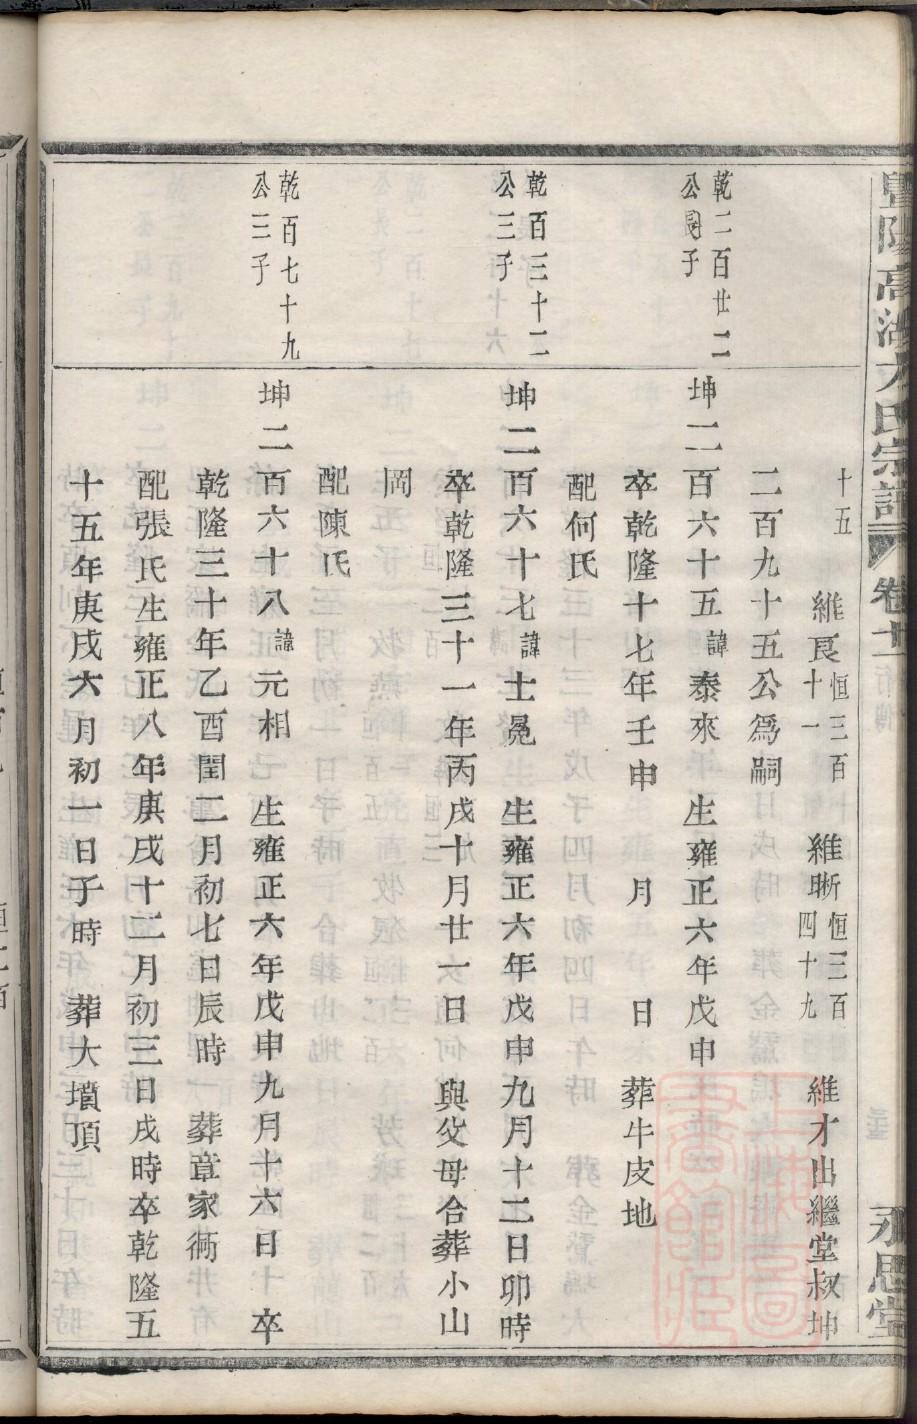 暨陽高湖方氏宗譜
卷十一
永思堂
十五
維良恒三百十一 維晰恒三百四十九 維才出繼堂叔坤
二百九十五公爲嗣
乾二百廿二
公嗣子
坤二百六十五諱泰來 生雍正六年戊申
卒乾隆十七年壬申 月 日 葬牛皮地
配何氏
乾百三十二
公三子
坤二百六十七諱士冕 生雍正六年戊申九月十二日卯時
卒乾隆三十一年丙戌十月廿一日 與父母合葬小山
岡
配陳氏
乾百七十九
公三子
坤二百六十八諱元相 生雍正六年戊申九月十六日 卒
乾隆三十年乙酉閏二月初七日辰時 葬章家衕
配張氏生雍正八年庚戌十二月初三日戌時卒乾隆五
十五年庚戌六月初一日子時 葬大墳頂